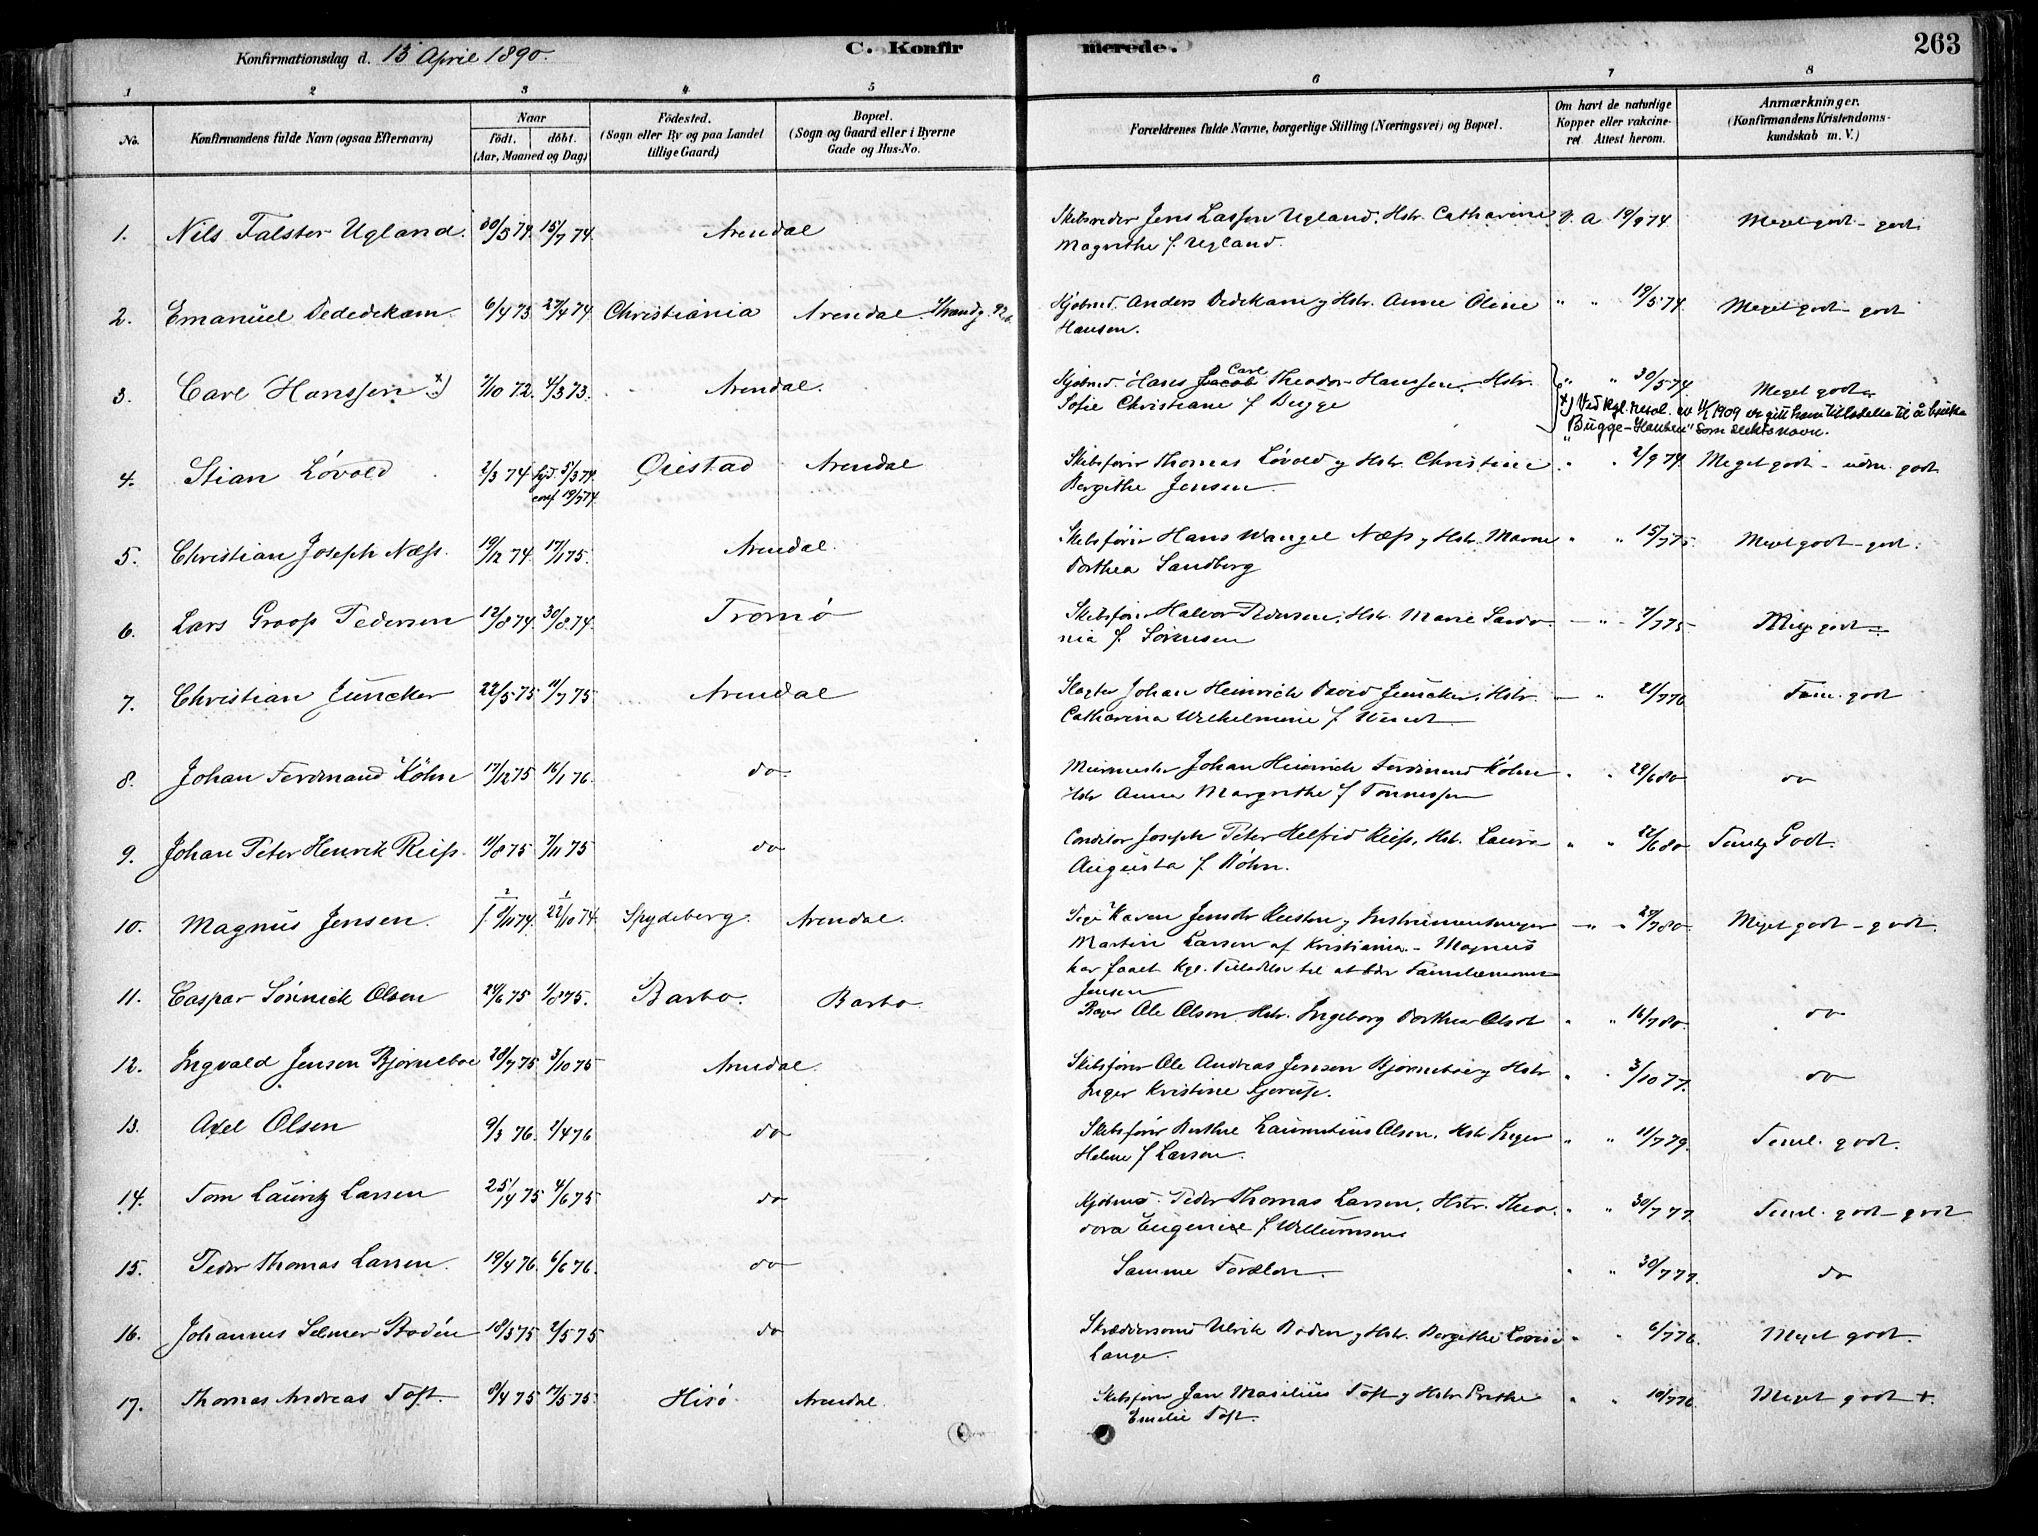 Konfirmationsdag d. 13 April 1890.
C. Konfirmerede.
263
1 2 3 4 5 6 7 8
No.
Konfirmandens fulde Navn (ogsaa Efternavn)
Naar
födt. döbt.
(Aar, Maaned og Dag)
Födested.
(Sogn eller By og paa Landet
tillige Gaard)
Bopæl.
(Sogn og Gaard eller i Byerne
Gade og Hus-No.
Forældrenes fulde Navne, borgerlige Stilling (Næringsvei) og Bopæl.
Om havt de naturlige
Kopper eller vakcine-
ret Attest herom.
Anmærkninger.
(Konfirmandens Kristendoms-
kundskab m. V.)
1. Nils Falster Ugland. 30/5 74. 15/7 74. Arendal Skibsreder Jens Lassen Ugland, Hstr. Catharine V. A 19/9 74 Meget godt - godt
Magrethe f. Ugland.
2. Emanuel Dededekam 6/4 73 27/4 74 Christiania Arendal Kjøbmd. Anders Dedekam og Hstr. Anne Oline " " 19/5 74. Meget godt - godt
Hansen.
3. Carl Hanssen x) 7/10 72. 4/3 73. Arendal. Kjøbmd. Hans Jacob Carl Theodor Hanssen, Hstr. " " 30/5 74 Meget godt
Sofie Christiane f Bugge
x) Ved Kgl. resol. av 1909 er gitt ham tilladelse til å bruke
"Bugge-Hanssen" som slektsnavn.
4. Stian Løvold 2/3 74 hjd. 5/3 74. Øiestad Arendal Skibsfører Thomas Løvold og Hstr. Christine " " 2/9 74 Meget godt - udm. godt
conf 19/7 74. Bergithe Jensen
5. Christian Joseph Næss. 19/12 74. 17/1 75. Arendal. Skibsfører Hans Wangel Næss og Hstr. Maren " " 15/7 75. Meget godt - godt.
Dorthea Sandberg
6. Lars Groos Pedersen 12/8 74. 30/8 74. Tromø Skibsfører Halvor Pedersen, Hstr. Marie Lando- - " 7/7 75 Meg. godt
nia f. Sørensen
7. Christian Juncker 22/5 75 11/7 75 Arendal Slagter Johan Heinrich David Juncker, Hstr. - " 21/7 76 Teml. godt
Catharina Wilhelmine f
8. Johan Ferdinand Köhn 17/12 75 16/1 76. do. Murmester Johan Heinrich Ferdinand Köhn " " 29/6 80 do
Hstr Anne Margrethe f Tønnessen
9. Johan Peter Henrik Reiss. 11/8 75 7/11 75 do Conditor Joseph Peter Helfrid Reiss, Hstr. Laura " " 22/6 80 Temlig Godt.
Augusta f. Köhn.
10. Magnus Jensen. 74. 74. Spydeberg. Arendal. Pige Karen Jensdr og Instrumentmager - " " 29/7 80 Meget godt - godt.
Martin Larsen af Kristiania - Magnus
har faaet Kgl. Tilladelse til at bære Familienavnet
Jensen
11. Caspar Sönnick Olsen 24/6 75 1/8 75. Barbo. Barbo. Ole Olsen Hstr. Ingeborg Dorthea Olsdt " " 16/7 80. do
12. Ingvald Jensen Bjørneboe 28/7 75 3/10 75 Arendal Skibsfører Ole Andreas Jensen Bjørneboe og Hstr " " 3/10 77. do
Inger Kristine Kjerulf.
13. Axel Olsen 9/3 76. 2/4 76 do Skibsfører Berthe Laurentius Olsen, Hstr Inger " " 11/7 79. Teml. godt.
Helene f Larsen.
14. Tom Lauritz Larsen 25/4 75 4/6 75 do Kjøbmd. Peder Thomas Larsen, Hstr. Theo- " " 30/7 77. Teml. godt - godt
dora Eugenie f Willumsen
15. Peder Thomas Larsen. 19/4 76. 6/6 76. do Samme Forældre. " " 30/7 77. do
16. Johannes Selmer Bodén 18/3 75 2/5 75 do Skræddersvend Ulrik Boden og Hstr. Bergithe Lovise " " 6/7 76. Meget godt.
Lange.
17. Thomas Andreas Toft. 8/4 75 17/5 75. Hisö. Arendal. Skibsfører Jan Masilius Toft og Hstr Grethe " " 10/7 76 Meget godt +.
Emelie Toft.